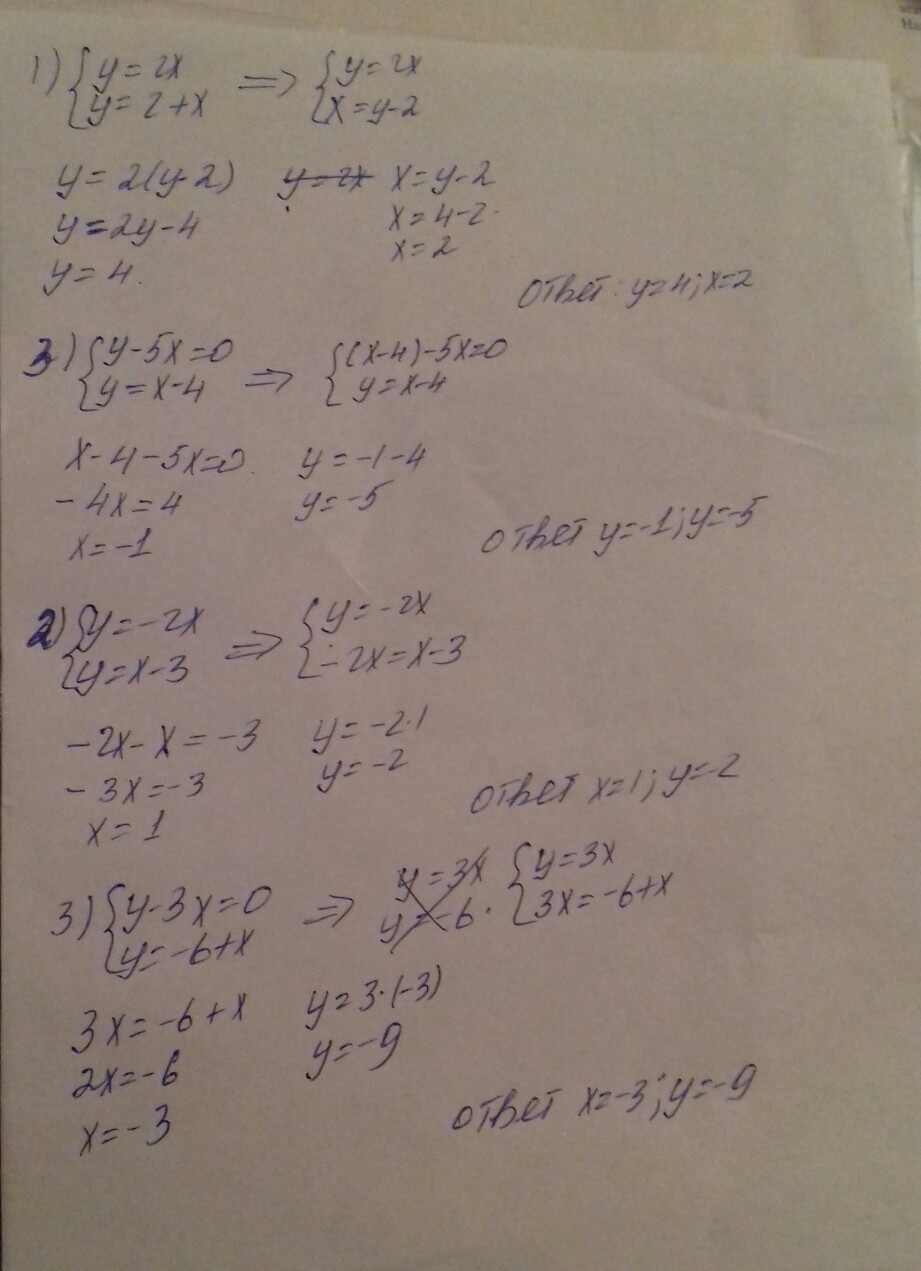 1) { y = 2x => { y = 2x
{ y = 2 + x { x = y - 2
y = 2(y - 2) y = 2x x = y - 2
y = 2y - 4 x = 4 - 2
y = 4. x = 2
Ответ: y = 4; x = 2
3) { y - 5x = 0 => { (x - 4) - 5x = 0
{ y = x - 4 { y = x - 4
x - 4 - 5x = 0. y = -1 - 4
- 4x = 4 y = -5
x = -1
Ответ y = -1; y = -5
2) { y = -2x => { y = -2x
{ y = x - 3 { -2x = x - 3
-2x - x = -3 y = -2·1
- 3x = -3 y = -2
x = 1
Ответ x = 1; y = -2
3) { y - 3x = 0 => y = 3x { y = 3x
{ y = -6 + x y = -6 · { 3x = -6 + x
3x = -6 + x y = 3·(-3)
2x = -6 y = -9
x = -3
Ответ x = -3; y = -9